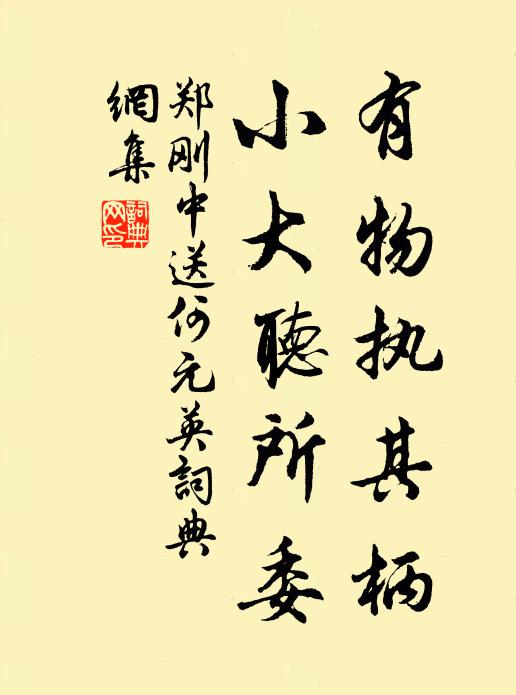 有物执其柄
小大聽所委
郑刚中送何元英詞典
網集
詞典
网印